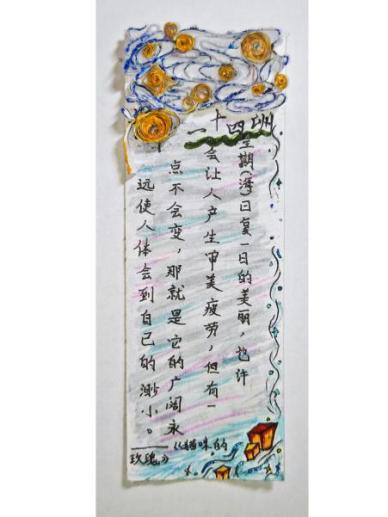 一十四洲
星期(海)日复一日的美丽，也许
会让人产生审美疲劳，但有一
点不会变，那就是它的广阔永
远使人体会到自己的渺小。
——《猫咪的
玫瑰》